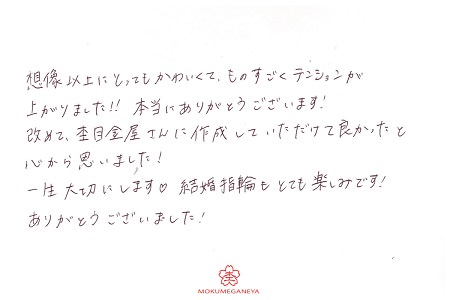 想像以上にとってもかわいくて、ものすごくテンションが
上がりました!! 本当にありがとうございます!
改めて、杢目金屋さんに作成していただけて良かったと
心から思いました!
一生大切にします♡ 結婚指輪もとても楽しみです!
ありがとうございました!
杢
MOKUMEGANEYA